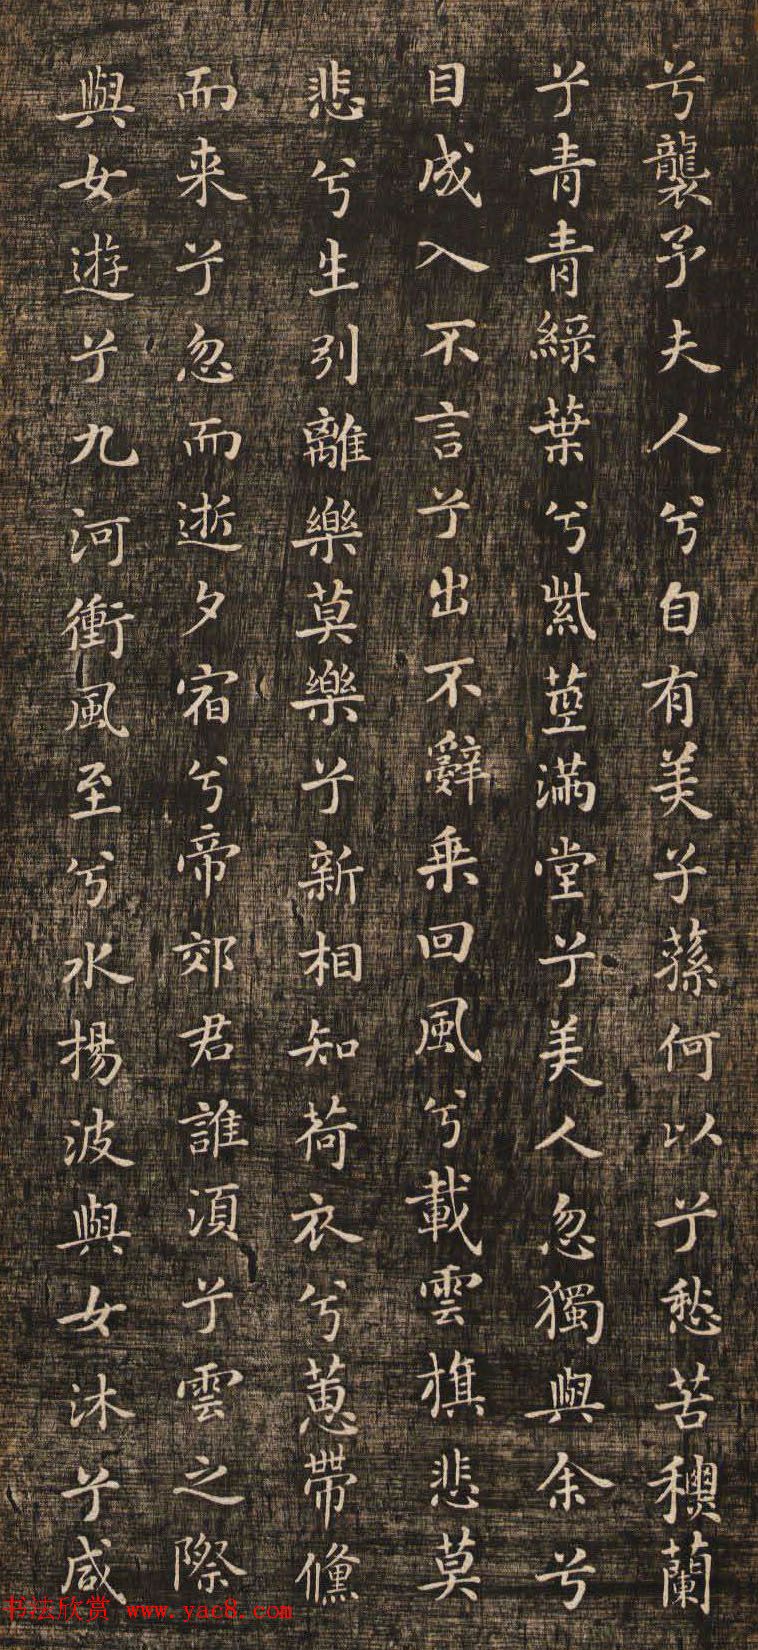 兮襲予夫人兮自有美子蓀何以兮愁苦穠蘭
兮青青綠葉兮紫莖滿堂兮美人忽獨與余兮
目成入不言兮出不辭乗回風兮載雲旗悲莫
悲兮生別離樂莫樂兮新相知荷衣兮蕙帶儵
而来兮忽而逝夕宿兮帝郊君誰須兮雲之際
與女遊兮九河衝風至兮水揚波與女沐兮咸
书法欣赏 www.yac8.com